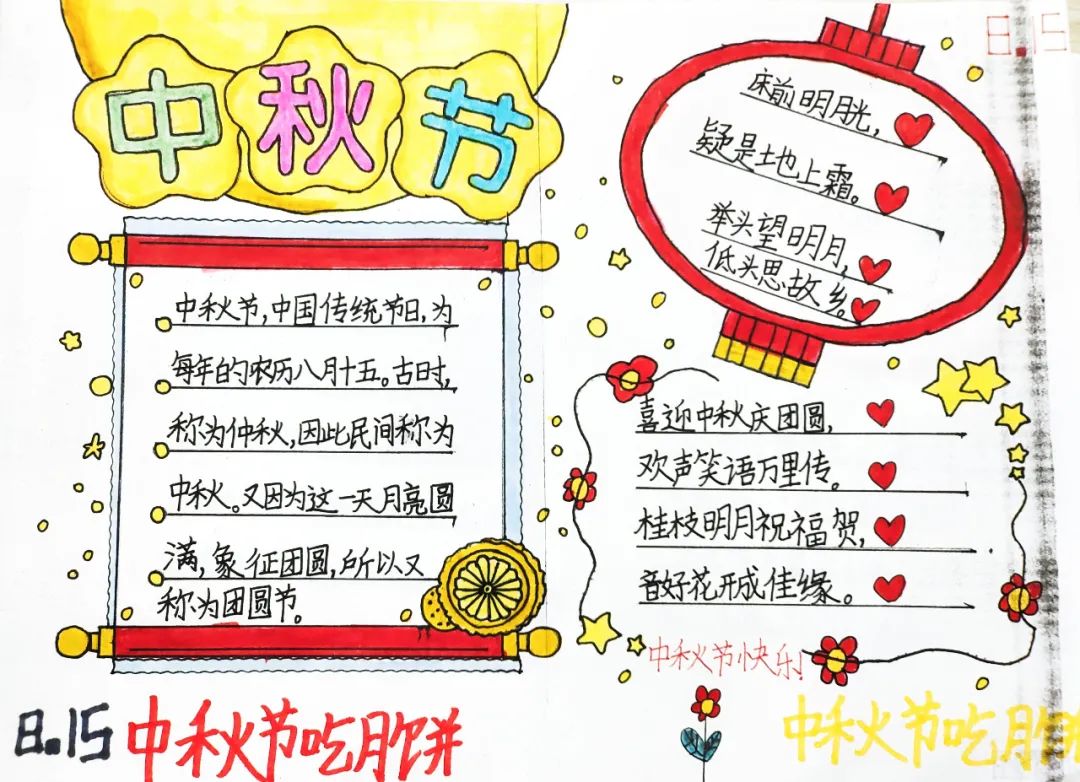 中秋节
中秋节,中国传统节日,为
每年的农历八月十五。古时,
称为仲秋,因此民间称为
中秋。又因为这一天月亮圆
满,象征团圆,所以又
称为团圆节。
8.15 中秋节吃月饼
8.15
床前明月光,
疑是地上霜。
举头望明月,
低头思故乡。
喜迎中秋庆团圆,
欢声笑语万里传。
桂枝明月祝福贺,
音好花形成佳缘。
中秋节快乐
中秋节吃月饼